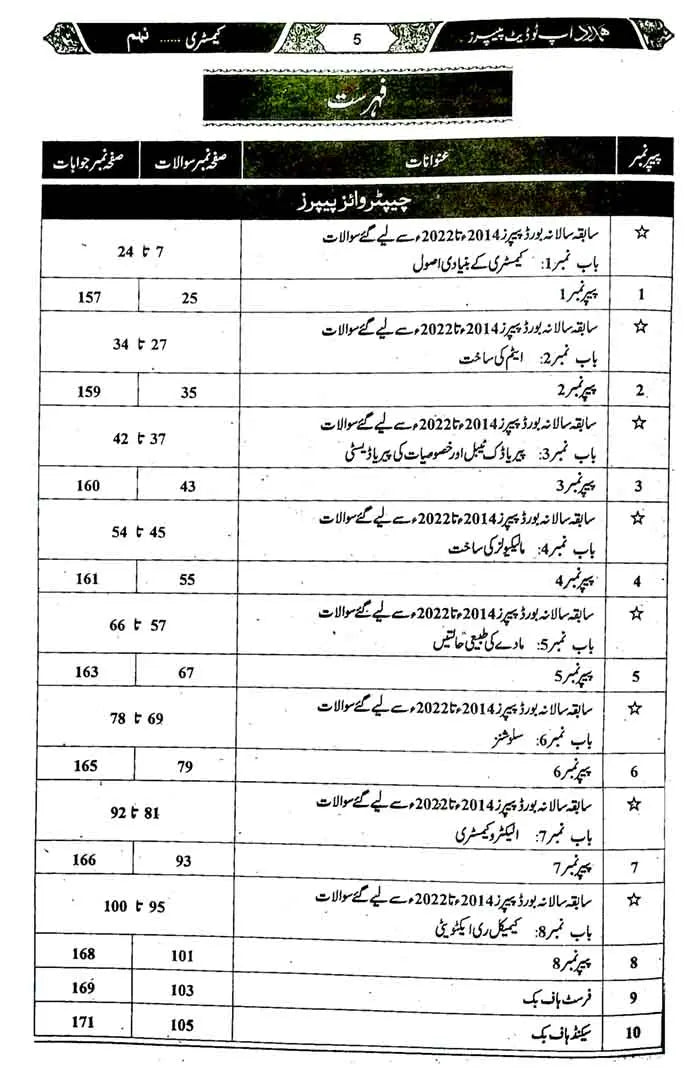 ہمدرد اپ ٹوڈیٹ پیپرز 5 کیمسٹری ...... نہم
فہرست
پیپر نمبر عنوانات صفحہ نمبر سوالات صفحہ نمبر جوابات
چیپٹر وائز پیپرز
☆ سابقہ سالانہ بورڈ پیپرز 2014ء تا 2022ء سے لیے گئے سوالات
باب نمبر 1: کیمسٹری کے بنیادی اصول 7 تا 24
1 پیپر نمبر 1 25 157
☆ سابقہ سالانہ بورڈ پیپرز 2014ء تا 2022ء سے لیے گئے سوالات
باب نمبر 2: ایٹم کی ساخت 27 تا 34
2 پیپر نمبر 2 35 159
☆ سابقہ سالانہ بورڈ پیپرز 2014ء تا 2022ء سے لیے گئے سوالات
باب نمبر 3: پیریاڈک ٹیبل اور خصوصیات کی پیریاڈیسٹی 37 تا 42
3 پیپر نمبر 3 43 160
☆ سابقہ سالانہ بورڈ پیپرز 2014ء تا 2022ء سے لیے گئے سوالات
باب نمبر 4: مالیکیولز کی ساخت 45 تا 54
4 پیپر نمبر 4 55 161
☆ سابقہ سالانہ بورڈ پیپرز 2014ء تا 2022ء سے لیے گئے سوالات
باب نمبر 5: مادے کی طبیعی حالتیں 57 تا 66
5 پیپر نمبر 5 67 163
☆ سابقہ سالانہ بورڈ پیپرز 2014ء تا 2022ء سے لیے گئے سوالات
باب نمبر 6: سلوشنز 69 تا 78
6 پیپر نمبر 6 79 165
☆ سابقہ سالانہ بورڈ پیپرز 2014ء تا 2022ء سے لیے گئے سوالات
باب نمبر 7: الیکٹروکیمسٹری 81 تا 92
7 پیپر نمبر 7 93 166
☆ سابقہ سالانہ بورڈ پیپرز 2014ء تا 2022ء سے لیے گئے سوالات
باب نمبر 8: کیمیکل ری ایکٹویٹی 95 تا 100
8 پیپر نمبر 8 101 168
9 فرسٹ ہاف بک 103 169
10 سیکنڈ ہاف بک 105 171